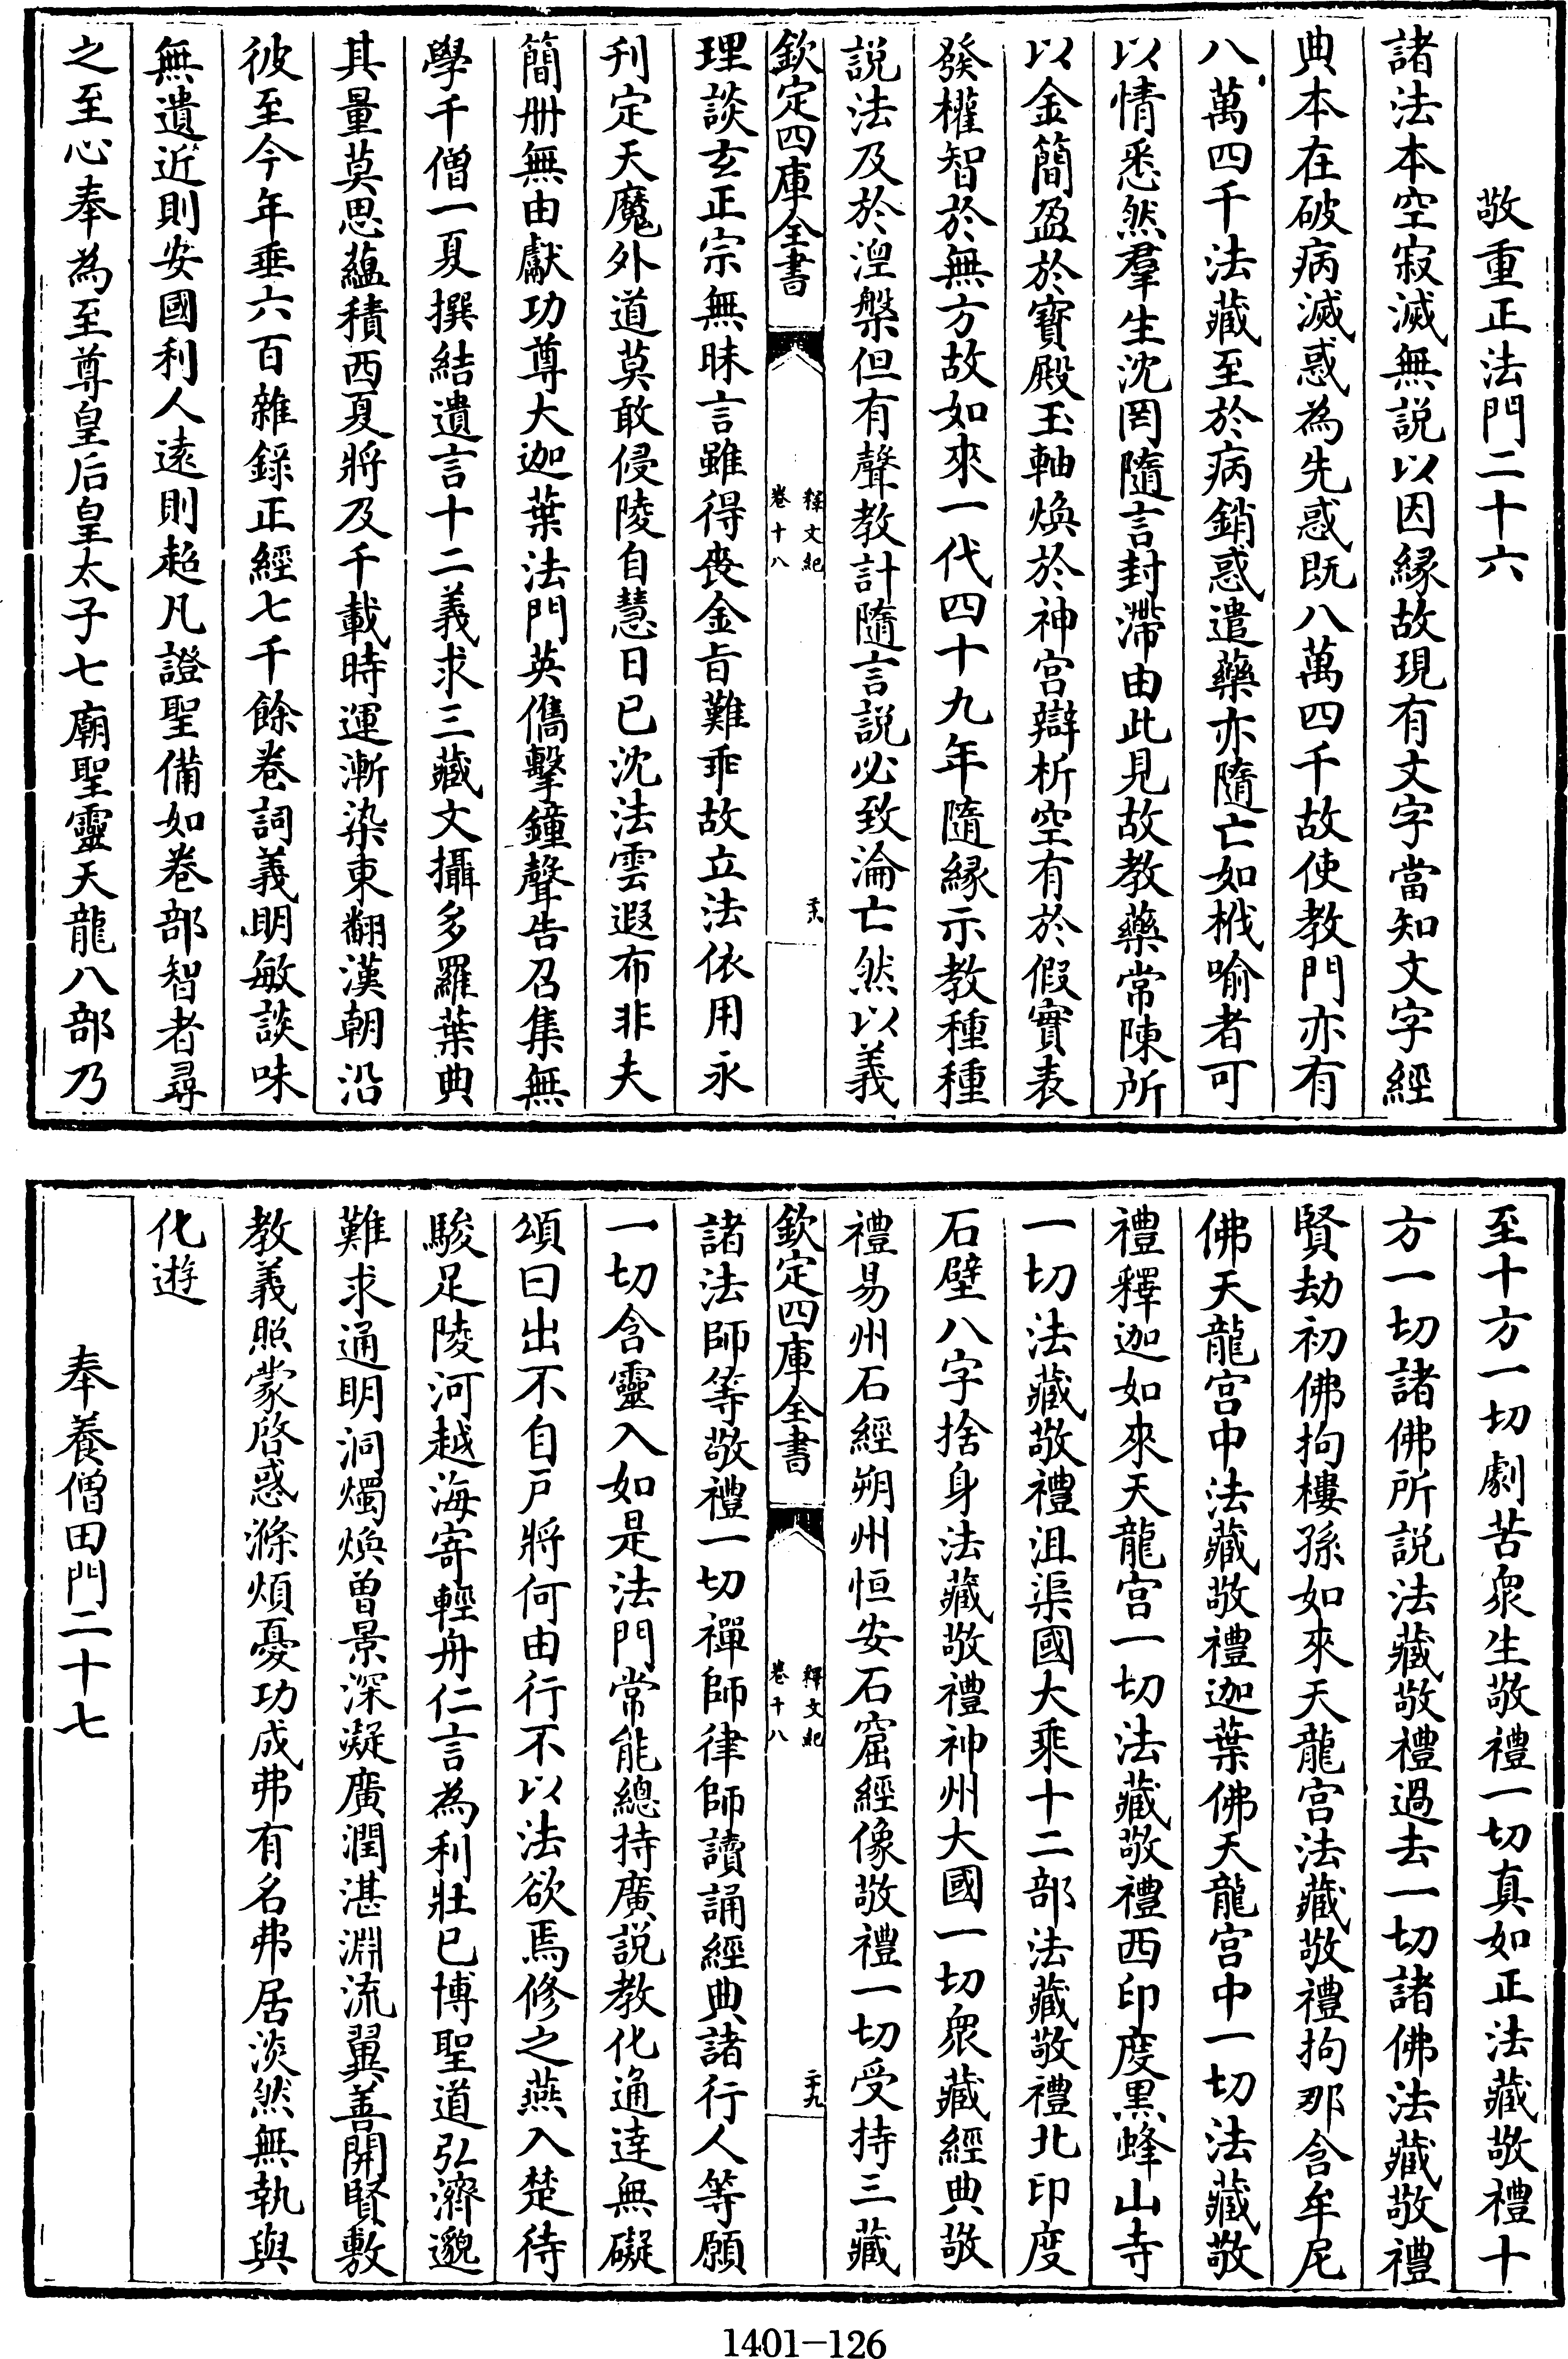 敬重正法門二十六
諸法本空寂滅無説以因縁故現有文字當知文字經
典本在破病滅惑為先惑既八萬四千故使教門亦有
八萬四千法藏至於病銷惑遣藥亦隨亡如栰喻者可
以情悉然羣生沈罔隨言封滯由此見故教藥常陳所
以金簡盈於寳殿玉軸煥於神宫辯析空有於假實表
發權智於無方故如來一代四十九年隨縁示教種種
説法及於湼槃但有聲教計隨言説必致淪亡然以義
欽定四庫全書
釋文紀
卷十八
二十八
理談玄正宗無昧言雖得喪金㫖難乖故立法依用永
刋定天魔外道莫敢侵陵自慧日已沈法雲遐布非夫
簡册無由獻功尊大迦葉法門英儁擊鐘聲告召集無
學千僧一夏撰結遺言十二義求三藏文攝多羅葉典
其量莫思蘊積西夏將及千載時運漸染東翻漢朝沿
彼至今年垂六百雜錄正經七千餘卷詞義明敏談味
無遺近則安國利人遠則超凡證聖備如卷部智者尋
之至心奉為至尊皇后皇太子七廟聖靈天龍八部乃
至十方一切劇苦衆生敬禮一切真如正法藏敬禮十
方一切諸佛所説法藏敬禮過去一切諸佛法藏敬禮
賢劫初佛拘樓孫如來天龍宫法藏敬禮拘那含牟尼
佛天龍宫中法藏敬禮迦葉佛天龍宫中一切法藏敬
禮釋迦如來天龍宫一切法藏敬禮西印度黑蜂山寺
一切法藏敬禮沮渠國大乘十二部法藏敬禮北印度
石壁八字捨身法藏敬禮神州大國一切衆藏經典敬
禮易州石經朔州恒安石窟經像敬禮一切受持三藏
欽定四庫全書
釋文紀
卷十八
二十九
諸法師等敬禮一切禪師律師讀誦經典諸行人等願
一切含靈入如是法門常能總持廣説教化通達無礙
頌曰出不自戸將何由行不以法欲焉修之燕入楚待
駿足陵河越海寄輕舟仁言為利壯已博聖道弘濟邈
難求通明洞燭煥曽景深凝廣潤湛淵流翼善開賢敷
教義照蒙啓惑滌煩憂功成弗有名弗居淡然無執與
化遊
奉養僧田門二十七
1401-126